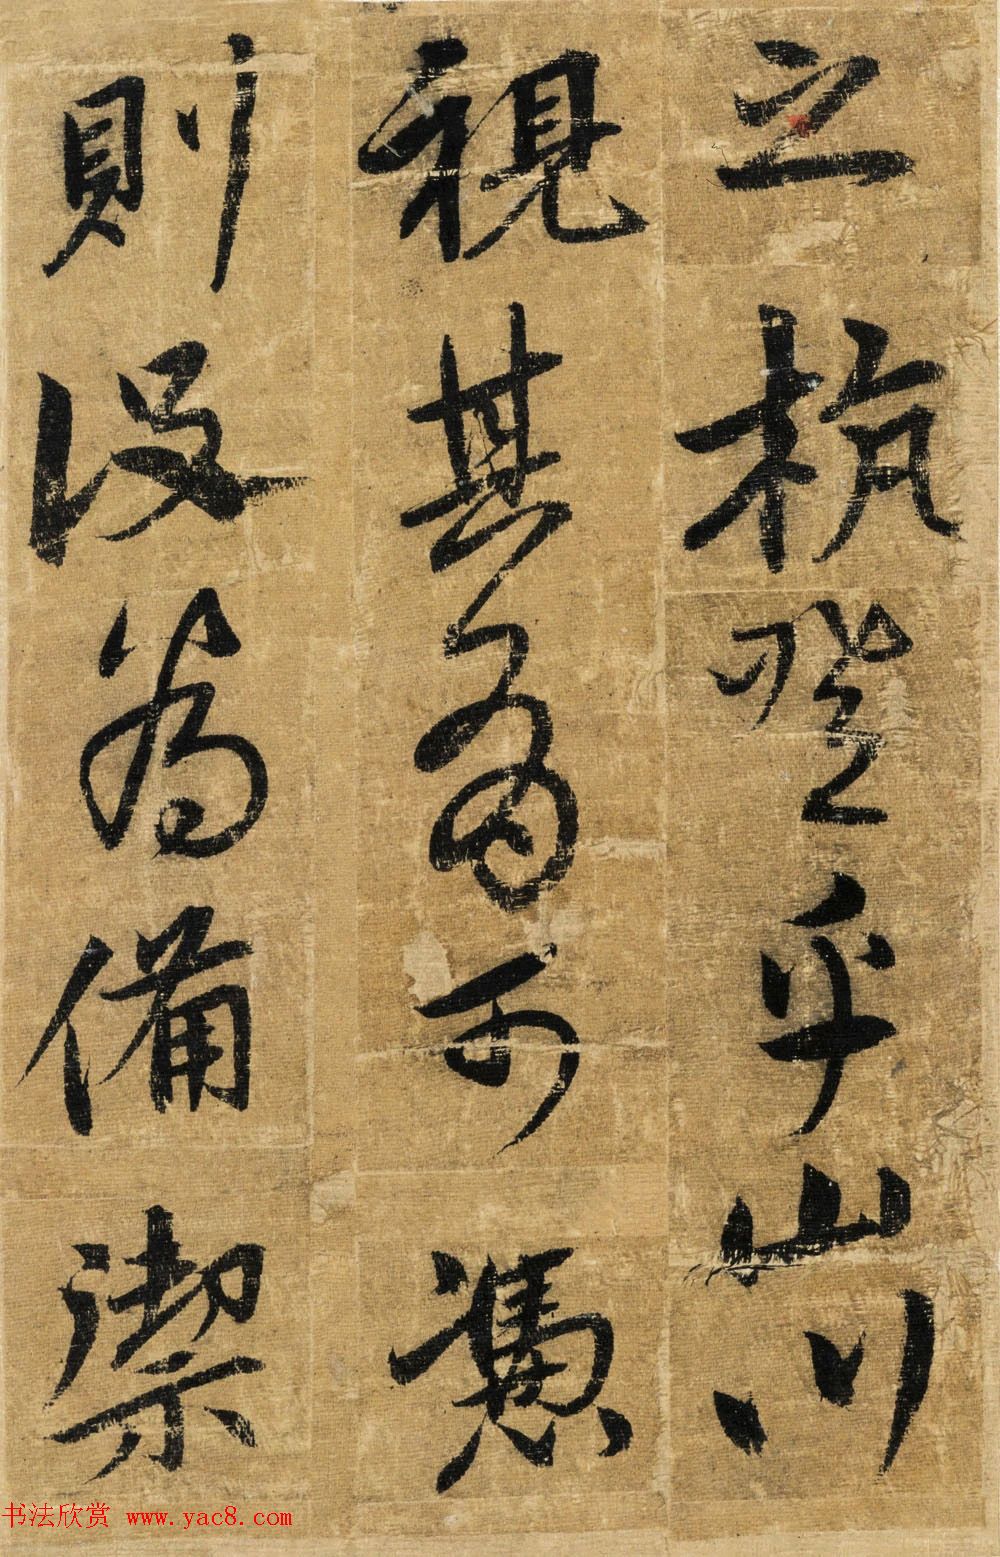 之杭登乎山川
視其可憑
則設為備禦
书法欣赏 www.yac8.com